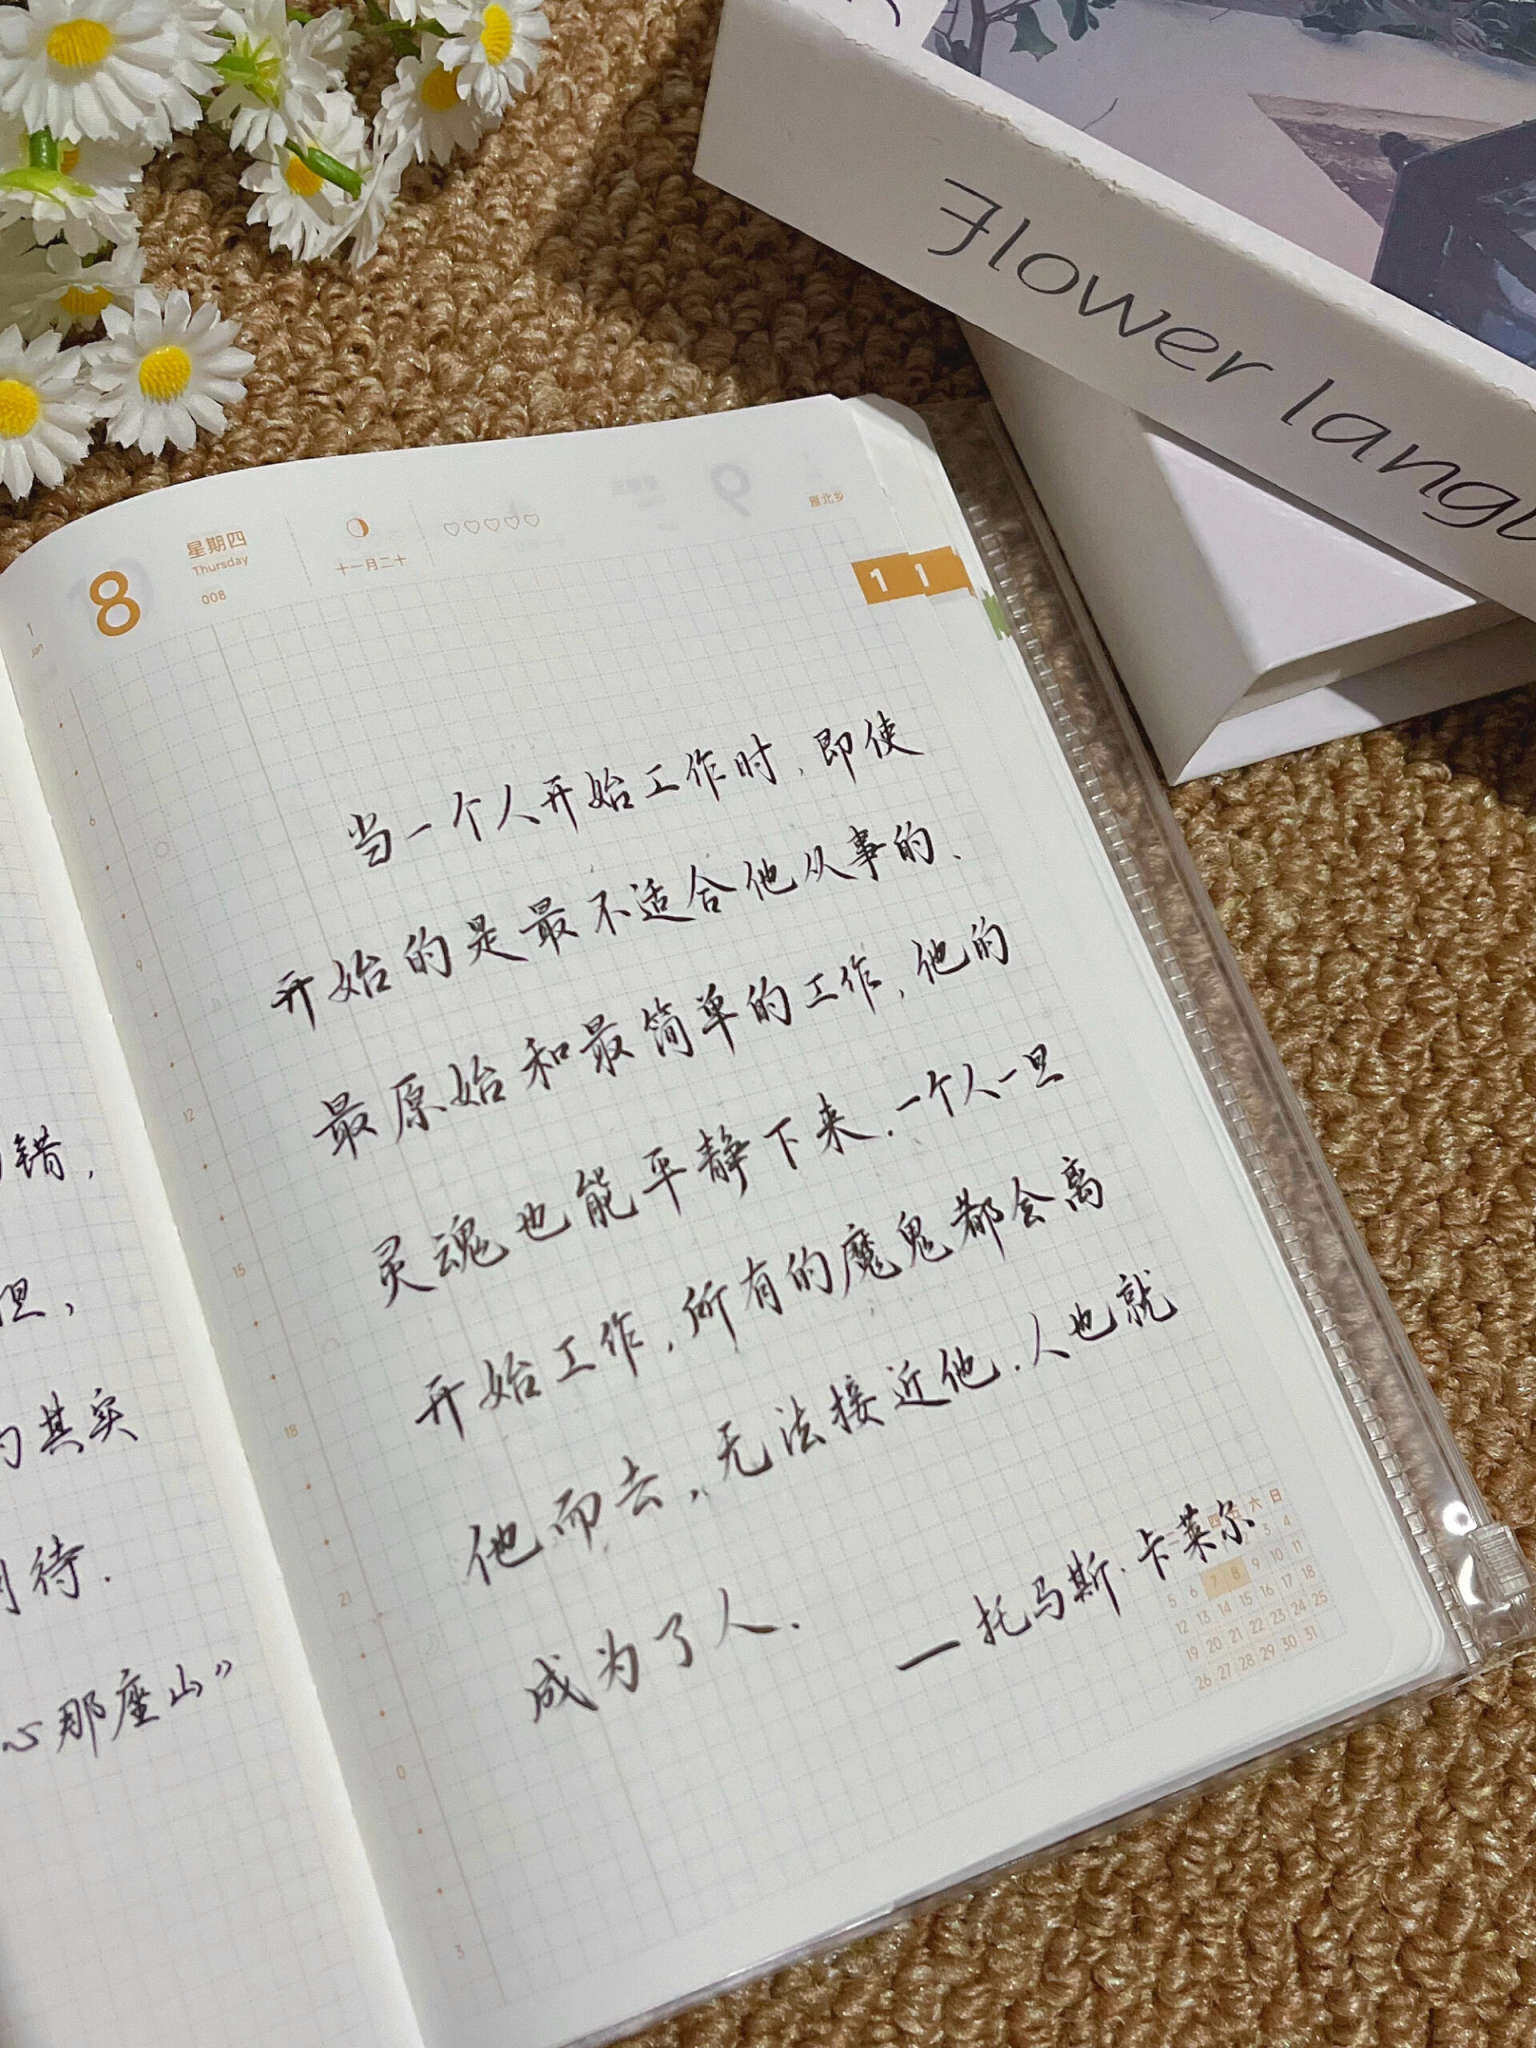 Flower lang
8
星期四
Thursday
008
十一月二十
雁北乡
1
1
1
Jan
6
9
12
15
18
21
0
3
当一个人开始工作时,即使
开始的是最不适合他从事的、
最原始和最简单的工作,他的
灵魂也能平静下来.一个人一旦
开始工作,所有的魔鬼都会离
他而去,无法接近他.人也就
成为了人.
—托马斯·卡莱尔
四 五 六 日
3 4
5 6 7 8 9 10 11
12 13 14 15 16 17 18
19 20 21 22 23 24 25
26 27 28 29 30 31
错,
但,
的其实
待.
心那座山”